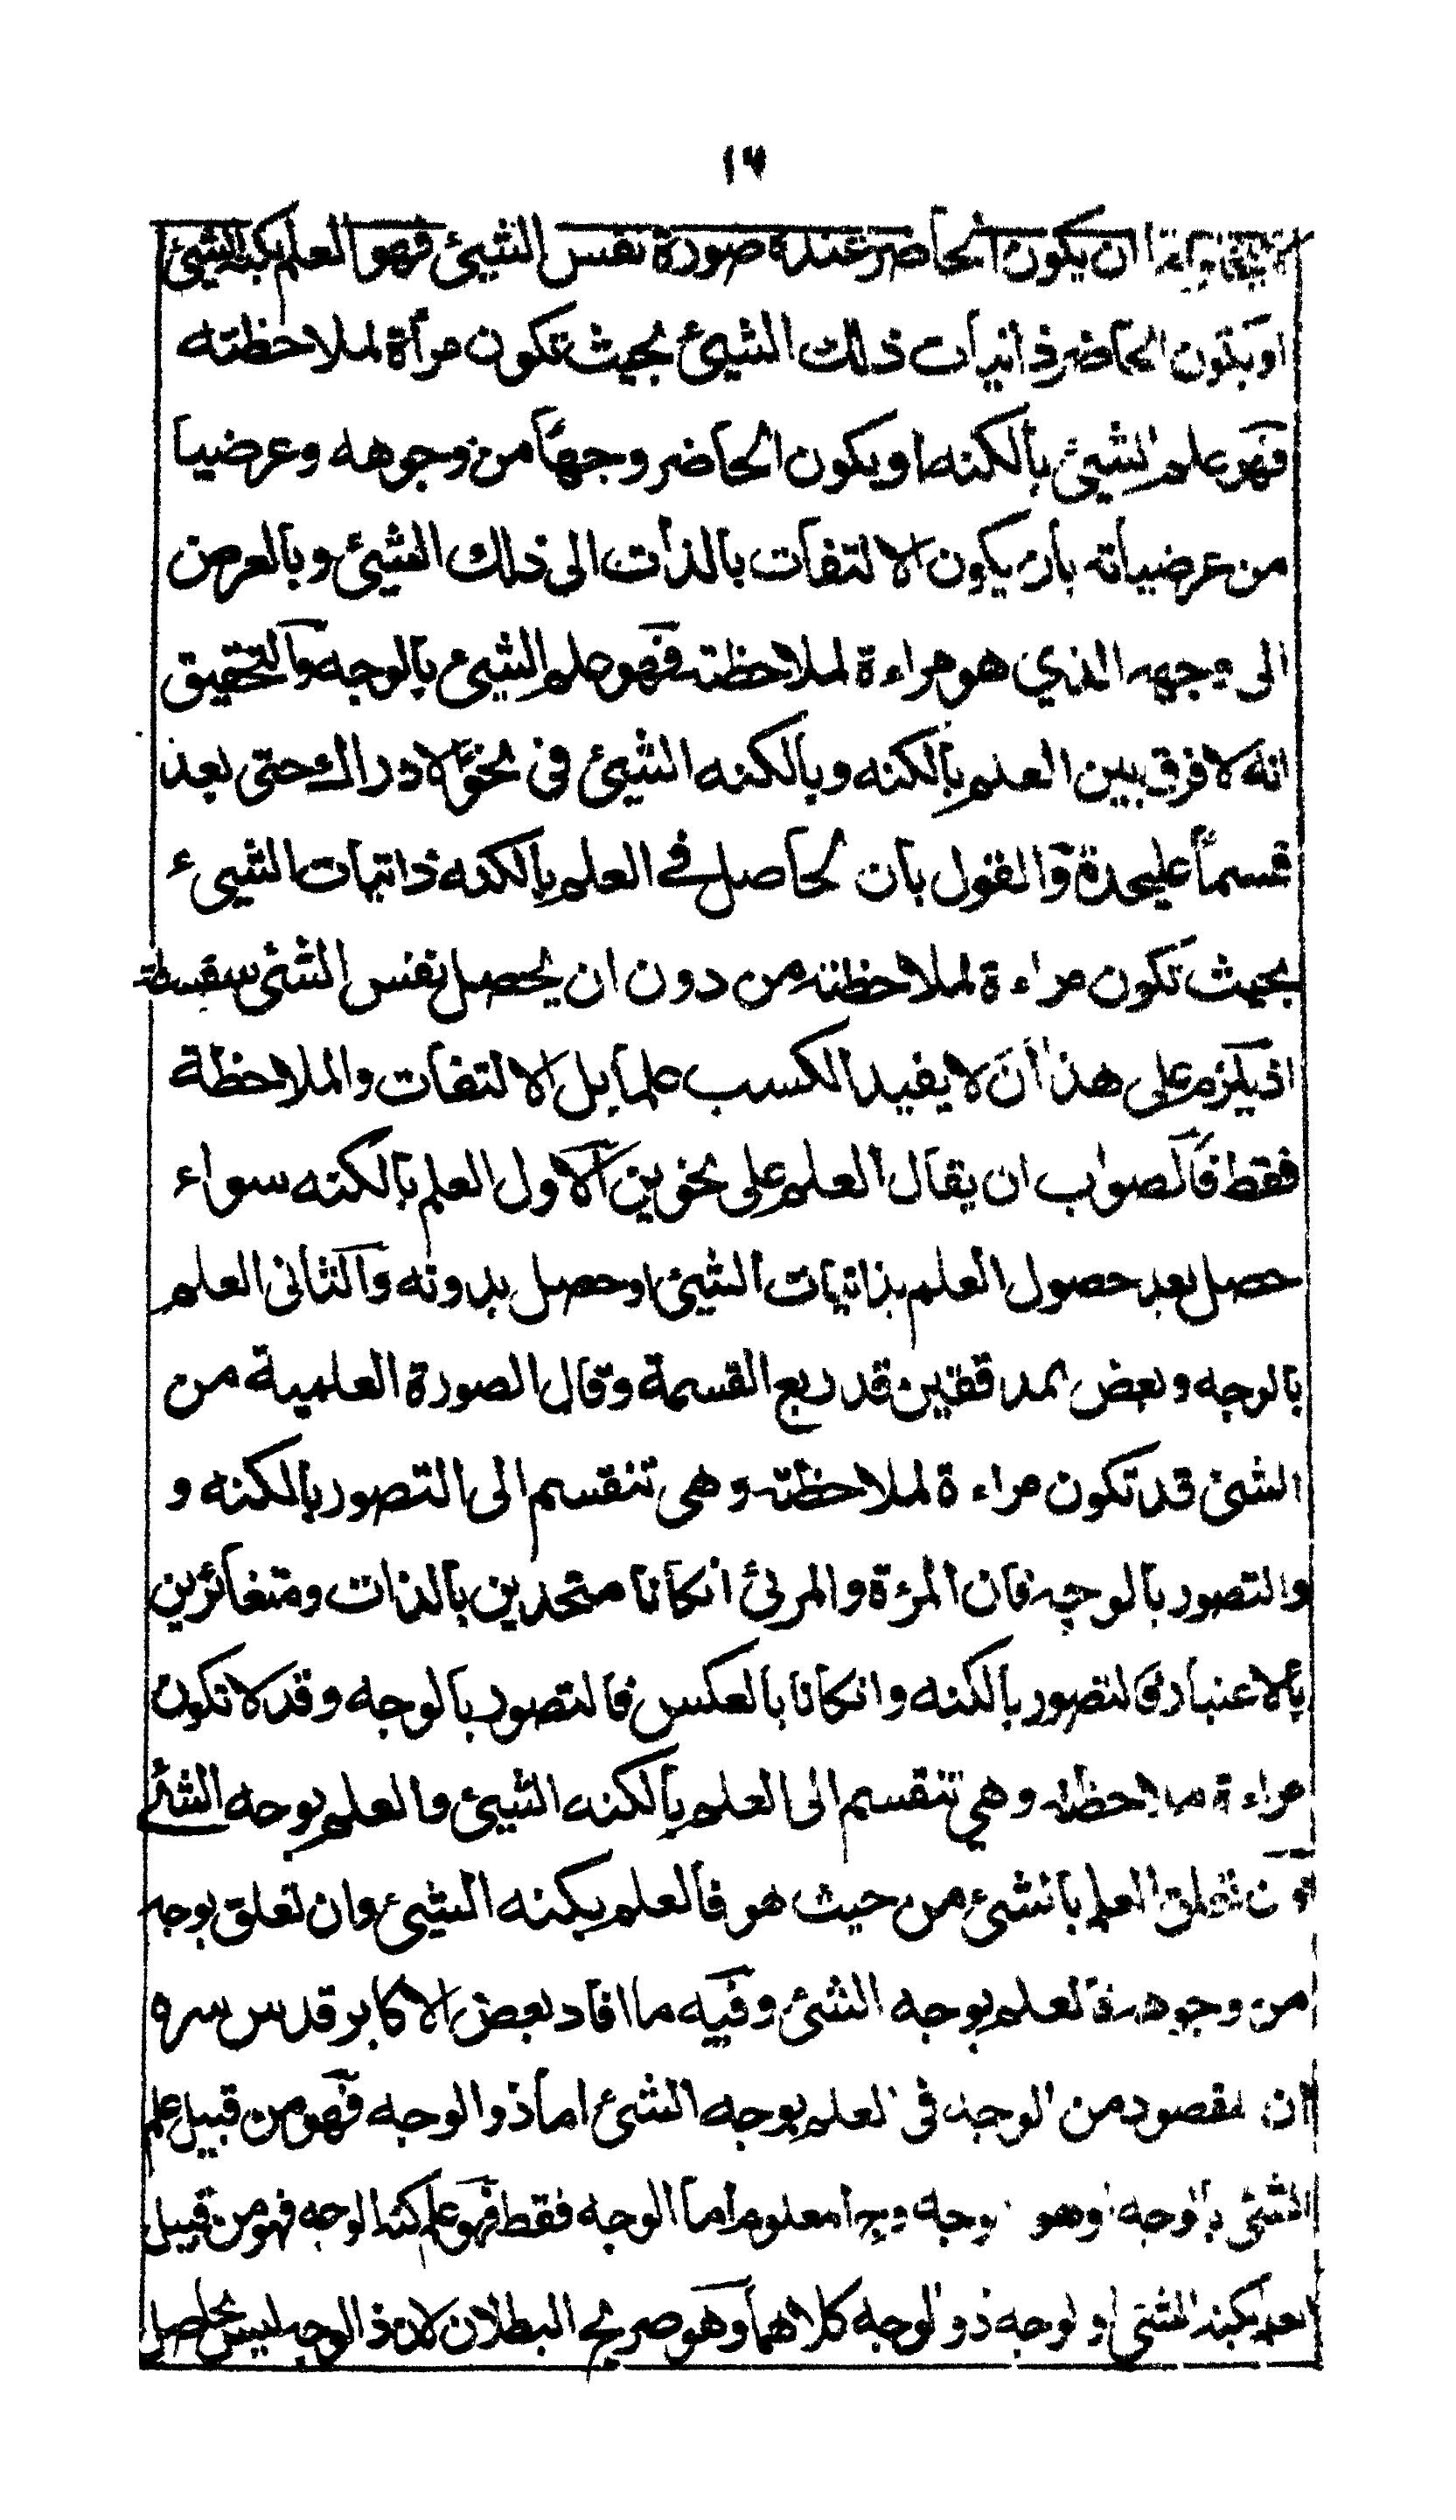 ١٦
ان يكون الحاضر عنده صورة نفس الشيئ فهو العلم بكنه الشيئ
او يكون الحاضر ذاتيات ذلك الشيئ بحيث تكون مرأة لملاحظته
فهو علم الشيئ بالكنه او يكون الحاضر وجهًا من وجوهه وعرضيا
من عرضياته بان يكون الالتفات بالذات الى ذلك الشيئ وبالعرض
الى وجهه الذي هو مراءة لملاحظته فهو علم الشيئ بالوجه والتحقيق
انه لا فرق بين العلم بالكنه وبالكنه الشيئ فى نحو الادراك حتى يعد
قسمًا عليحدة والقول بان لحاصل فے العلم بالكنه ذاتيات الشيىء
بحيث تكون مراءة لملاحظته من دون ان يحصل نفس الشئى سفسطة
اذ يلزم على هذا ان لا يفيد الكسب علما بل الالتفات والملاحظة
فقط فالصواب ان يقال العلم على نحوين الاول العلم بالكنه سواء
حصل بعد حصول العلم بذاتيات الشيئ او حصل بدونه والثانى العلم
بالوجه وبعض لمدققين قد ربع القسمة وقال الصورة العلمية من
الشئ قد تكون مراءة لملاحظته وهى تنقسم الى التصور بالكنه و
والتصور بالوجه فان المرءة والمرئ انكانا متحدين بالذات ومتغائرين
بالاعتبار فالتصور بالكنه وانكانا بالعكس فالتصور بالوجه وقد لا تكون
مراءة ملاحظته وهي تنقسم الى العلم بالكنه الشيئ والعلم بوجه الشئے
ن تعلق العلم بالشئ من حيث هو فالعلم بكنه الشيئ وان تعلق بوجه
من وجوهه فالعلم بوجه الشئ وفيه ما افاد بعض الاكابر قدس سره
ان لمقصود من الوجه فى لعلم بوجه الشئ اما ذو الوجه فهو من قبيل علم
الشئ بالوجه وهو بوجه معلوم اما الوجه فقط فهو علم كنه الوجه فهو من قبيل
العلم بكنه الشئى او لوجه ذو لوجه كلاهما وهو صريح البطلان لان ذا الوجه ليس بحاصل